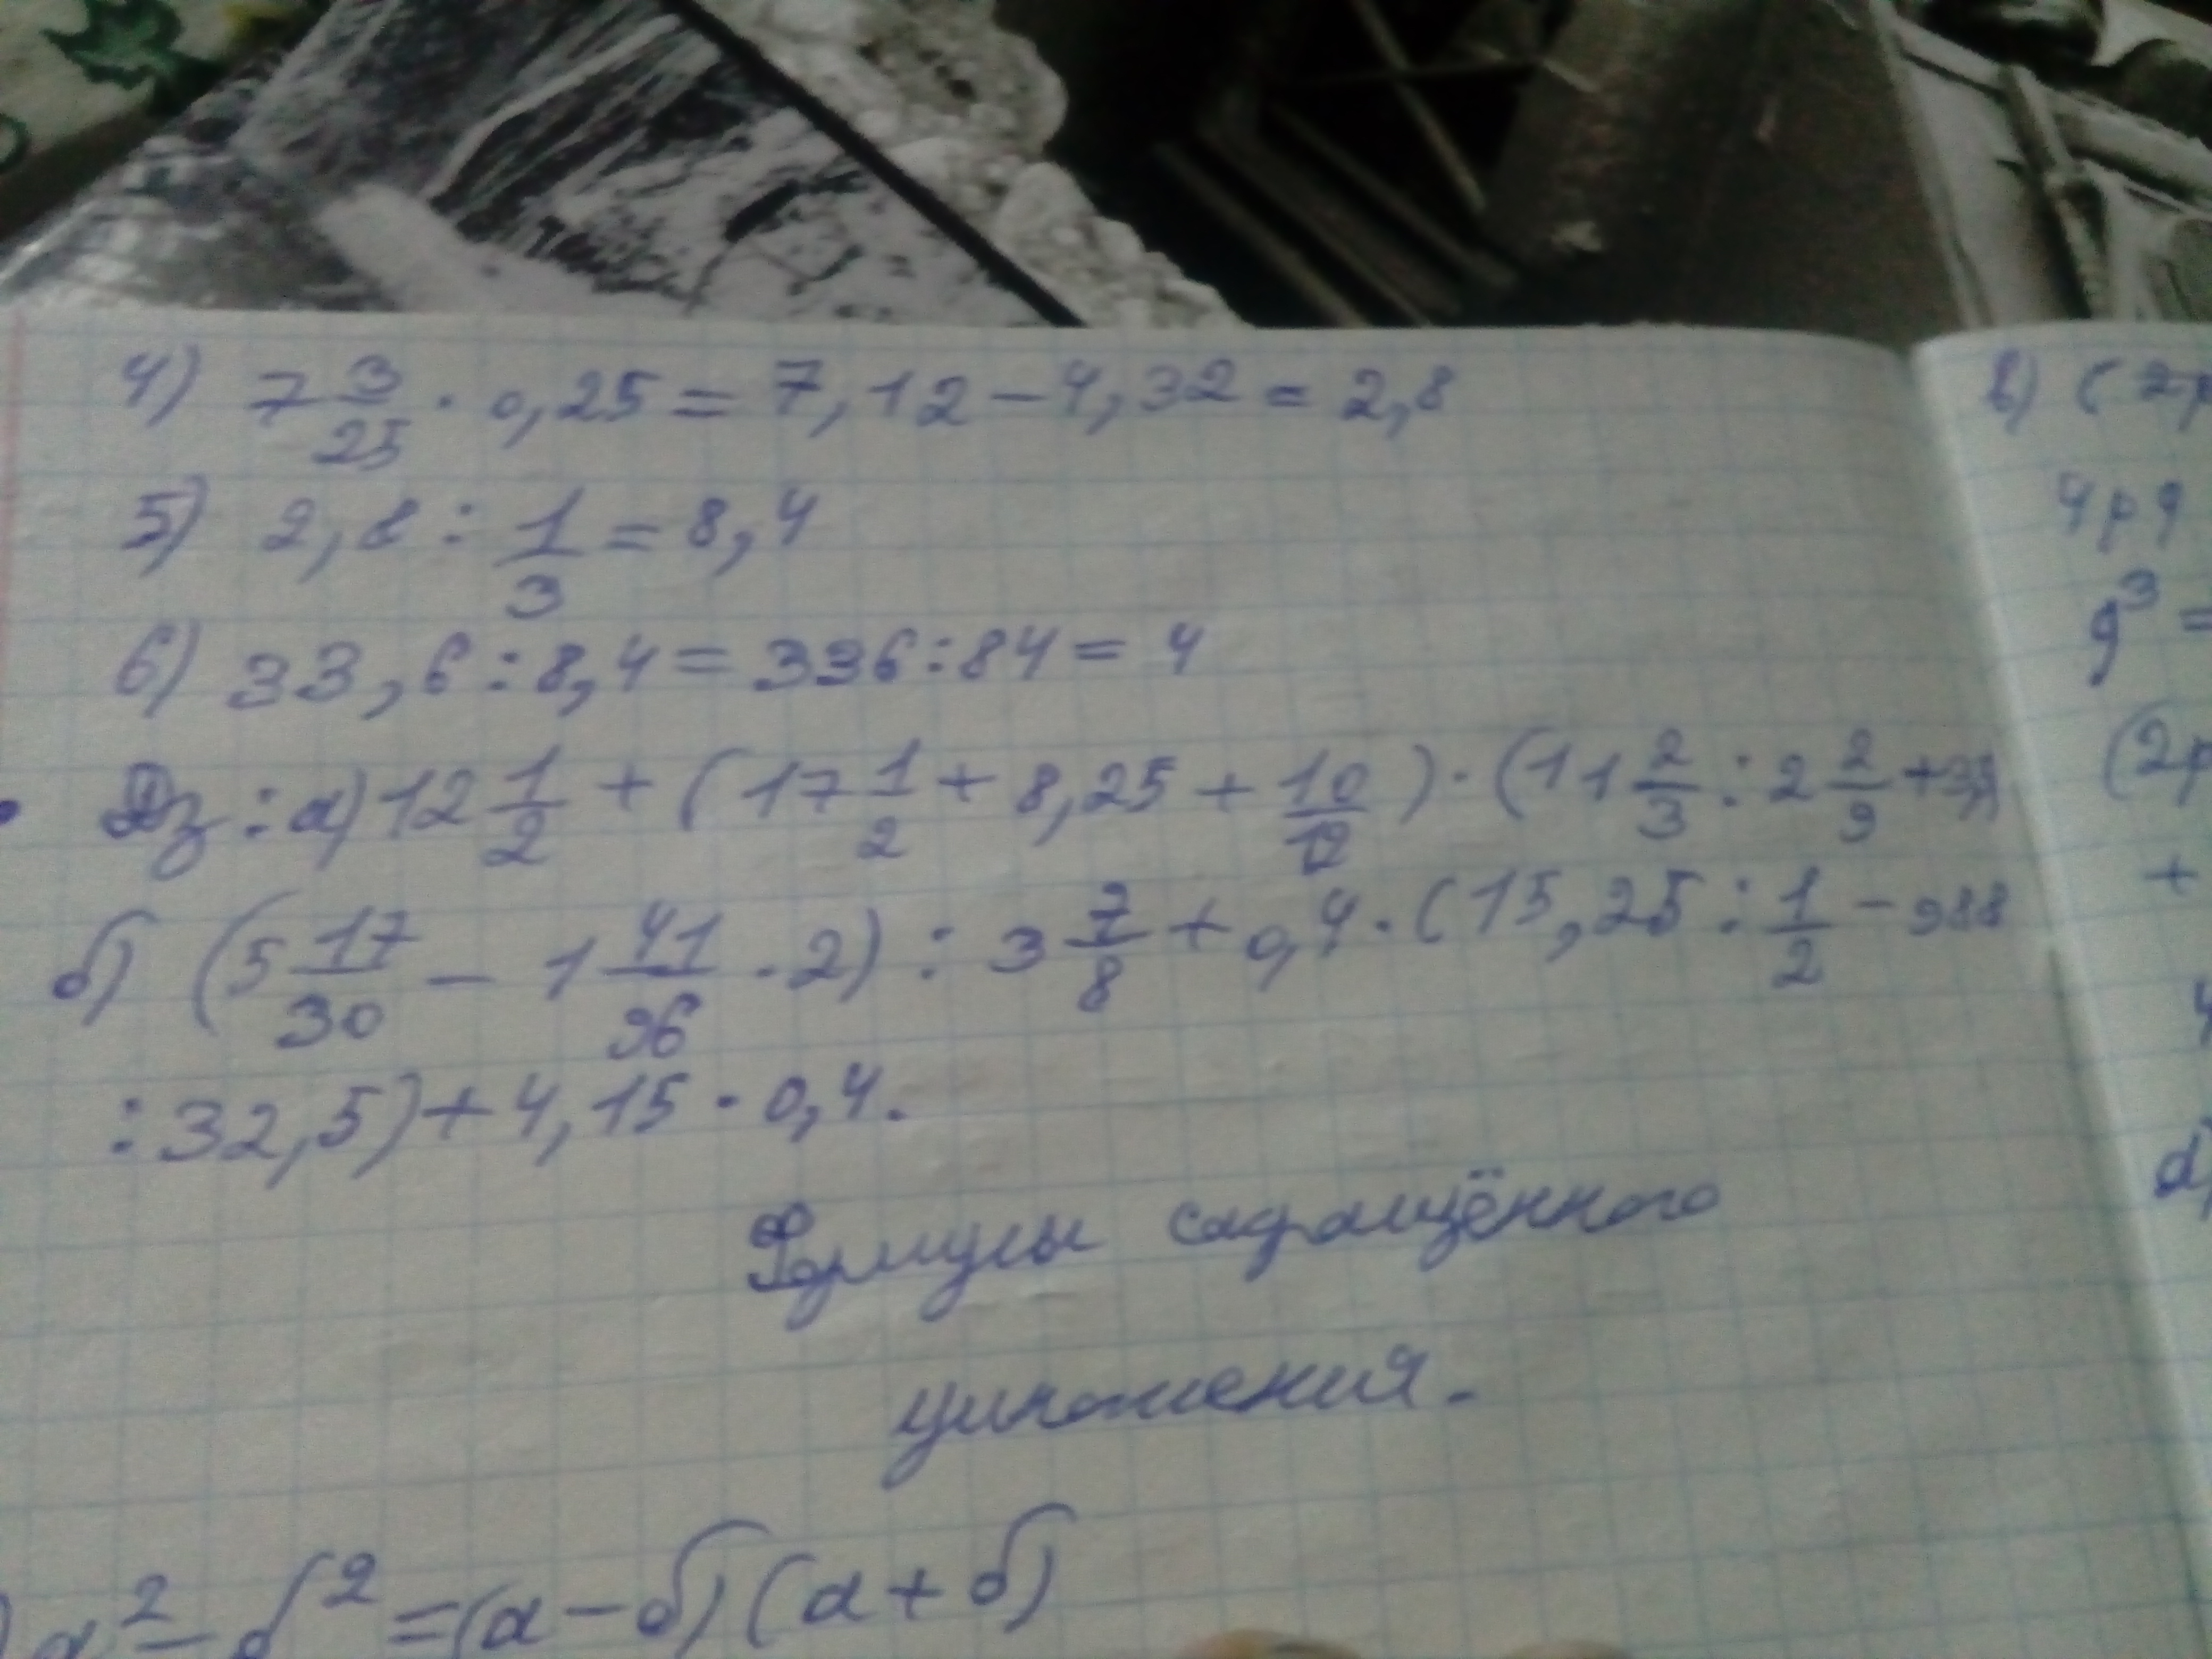 4) 7 3/25 · 0,25 = 7,12 - 4,32 = 2,8
5) 2,8 : 1/3 = 8,4
6) 33,6 : 8,4 = 336 : 84 = 4
Дз: а) 12 1/2 + (17 1/2 + 8,25 + 10/12) · (11 2/3 : 2 2/9 + 3,5)
б) (5 17/30 - 1 41/96 · 2) : 3 7/8 + 0,4 · (15,25 : 1/2 - 988
: 32,5) + 4,15 · 0,4.
Формулы сокращённого
умножения.
а² - б² = (а - б)(а + б)
в) (2p
4pq
q³ =
(2p
+
4